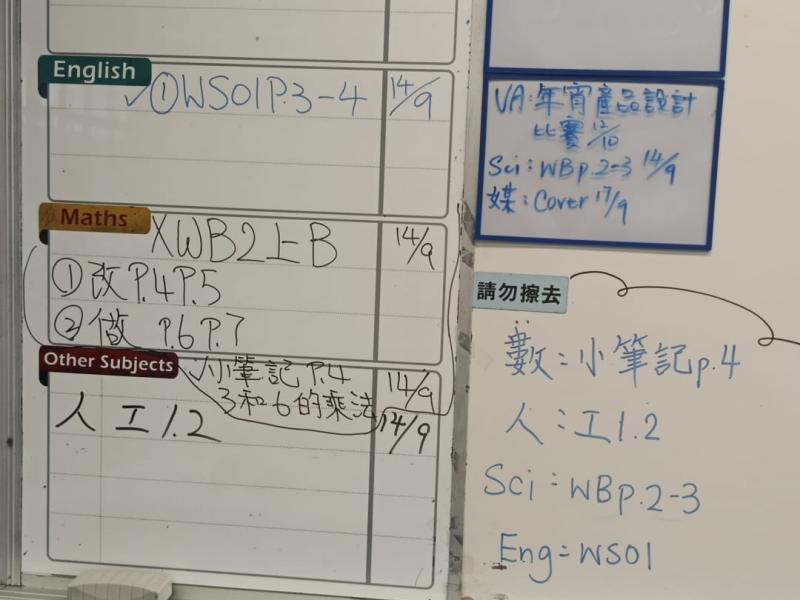 English
✓①WS01P.3-4 14/9
Maths
XWB2上B 14/9
①改P.4P.5
②做 P.6P.7
Other Subjects
✓小筆記 P.4 14/9
3和6的乘法
人 工1.2 14/9
VA:年宵產品設計
比賽 12/10
Sci:WBp.2-3 14/9
媒:Cover 17/9
請勿擦去
數:小筆記p.4
人:工1.2
Sci:WBp.2-3
Eng=WS01